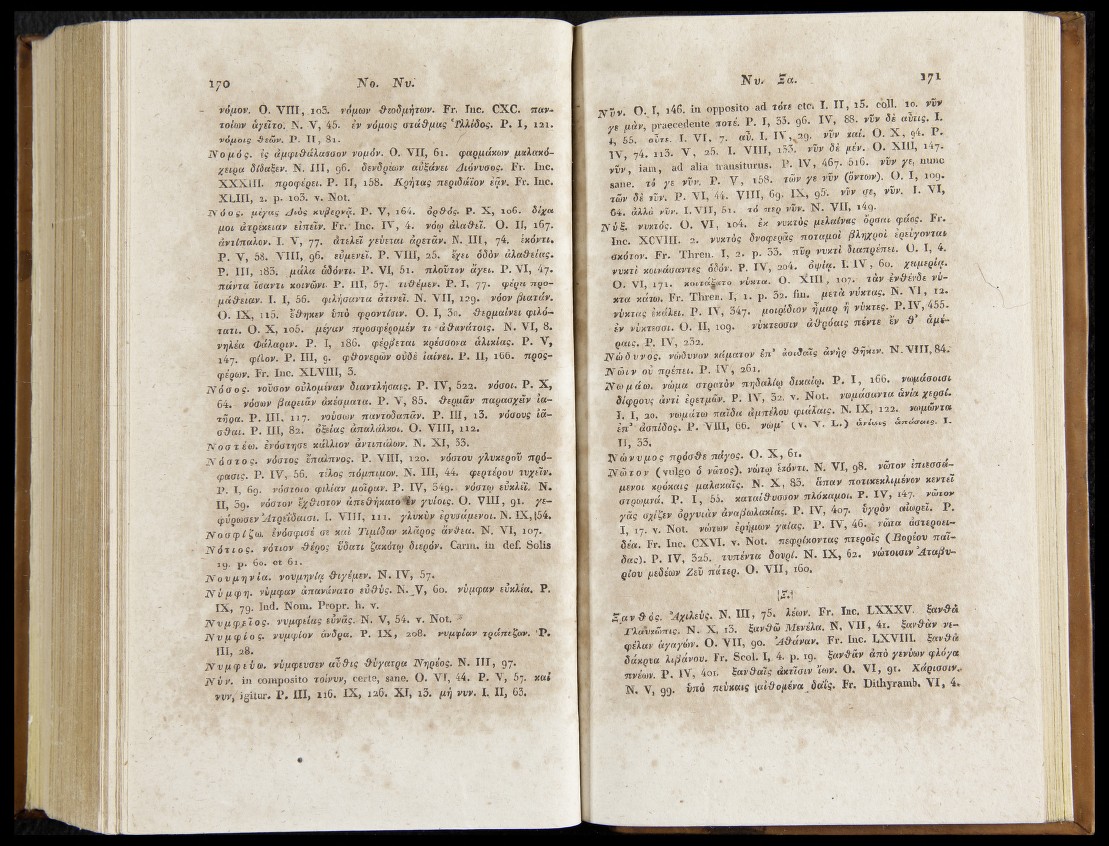 170 No. Nv.
νόμον. O. VIII, 103. νόμων θεοδμήτων. Fr. Inc. CXC. παν-
τοίων ἀγεῖτο. N. V, 45. ἐν νόμοις στάθμας Ὑλλίδος. P. I, 121.
νόμοις θεῶν. P. II, 81.
Νομός. ἐς ἀμφιθάλασσον νομόν. O. VII, 61. φαρμάκων μαλακό-
χειρα δίδαξεν. N. III, 96. δενδρέων αὐξάνει Διόνυσος. Fr. Inc.
XXXIII. προφέρει. P. II, 158. Κρήτας περιδαῖον ἐᾷν. Fr. Inc.
XLIII, 2. p. 103. v. Not.
Νόος. μέγας Διὸς κυβερνᾷ. P. V, 164. ὀρθός. P. X, 106. δίχα
μοι ἀτρέκειαν εἰπεῖν. Fr. Inc. IV, 4. νόῳ ἀλαθεῖ. O. II, 167.
ἀντίπαλον. I. V, 77. ἀτελεῖ γεύεται ἀρετᾶν. N. III, 74. ἑκόντι.
P. V, 58. VIII, 96. εὐμενεῖ. P. VIII, 25. ἔχει ὁδὸν ἀλαθείας.
P. III, 183. μάλα ἁδόντι. P. VI, 51. πλοῦτον ἄγει. P. VI, 47.
πάντα ἴσαντι κοινῶνι. P. III, 57. τιθέμεν. P. I, 77. φέρει προ-
μάθειαν. I. I, 56. φιλήσαντα ἀτινεῖ. N. VII, 129. νόον βιατάν.
O. IX, 115. ἔθηκεν ὑπὸ φροντίσιν. O. I, 30. θερμαίνει φιλό-
τατι. O. X, 105. μέγαν προσφέρομέν τι ἀθανάτοις. N. VI, 8.
νηλέα Φάλαριν. P. I, 186. φέρβεται κρέσσονα ἁλικίας. P. V,
147. φίλον. P. III, 9. φθονερῶν οὐδὲ ἰαίνει. P. II, 166. προς-
φέρων. Fr. Inc. XLVIII, 3.
Νόσος. νοῦσον οὐλομέναν διαντλήσαις. P. IV, 522. νόσοι. P. X,
64. νόσων βαρειᾶν ἀκέσματα. P. V, 85. θερμᾶν παρασχεῖν ἰα-
τῆρα. P. III, 117. νούσων παντοδαπᾶν. P. III, 13. νόσους ἰᾶ-
σθαι. P. III, 82. ὀξείας ἀπαλάλκοι. O. VIII, 112.
Νοστέω. ἐνόστησε κάλλιον ἀντιπάλων. N. XI, 33.
Νόστος. νόστος ἔπαλπνος. P. VIII, 120. νόστου γλυκεροῦ πρό-
φασις. P. IV, 58. τέλος πόμπιμον. N. III, 44. φερτέρου τυχεῖν.
P. I, 69. νόστοιο φιλίαν μοῖραν. P. IV, 349. νόστῳ εὐκλεῖ. N.
II, 39. νόστον ἔχθιστον ἀπεθήκατο ἐν γυίοις. O. VIII, 91. γε-
φύρωσεν Ἀτρεΐδαισι. I. VIII, 111. γλυκὺν ἐρυσάμενοι. N. IX, 54.
Νοσφίζω. ἐνόσφισέ σε καὶ Τιμίδαν κλᾶρος ἄνθεα. N. VI, 107.
Νότιος. νότιον θέρος ὕδατι ζακότῳ διερόν. Carm. in def. Solis
19. p. 60. et 61.
Νουμηνία. νουμηνίᾳ θιγέμεν. N. IV, 57.
Νύμφη. νύμφαν ἀπανάνατο εὐθύς. N. V, 60. νύμφαν εὐκλέα. P.
IX, 79. Ind. Nom. Propr. h. v.
Νυμφεῖος. νυμφείας εὐνᾶς. N. V, 54. v. Not.
Νυμφίος. νυμφίον ἄνδρα. P. IX, 208. νυμφίαν τράπεζαν. P.
III, 28.
Νυμφεύω. νύμφευσεν αὖθις θύγατρα Νηρέος. N. III, 97.
Νύν. in composito τοίνυν, certe, sane. O. VI, 44. P. V, 57. καί
νυν, igitur. P. III, 116. IX, 126. XI, 13. μή νυν. I. II, 63.
Nv. Ξα. 171
Νῦν. O. I, 146. in opposito ad τότε etc. I. II, 15. coll. 10. νῦν
γε μὰν, praecedente ποτέ. P. I, 33. 96. IV, 88. νῦν δὲ αὖτις. I.
I, 55. οὔτε. I. VI, 7. αὖ. I. IV, 29. νῦν καί. O. X, 94. P.
IV, 74. 113. V, 25. I. VIII, 133. νῦν δὲ μέν. O. XIII, 147.
νῦν, iam, ad alia transiturus. P. IV, 467. 516. νῦν γε, nunc
sane. τό γε νῦν. P. V, 158. τῶν γε νῦν (ὄντων). O. I, 109.
τῶν δὲ νῦν. P. VI, 44. VIII, 69. IX, 95. νῦν σε, νῦν. I. VI,
64. ἀλλὰ νῦν. I. VII, 51. τό περ νῦν. N. VII, 149.
Νύξ. νυκτός. O. VI, 104. ἐκ νυκτὸς μελαίνας ὄρσαι φάος. Fr.
Inc. XCVIII. 2. νυκτὸς δνοφερᾶς ποταμοὶ βληχροὶ ἐρεύγονται
σκότον. Fr. Thren. I, 2. p. 33. πῦρ νυκτὶ διαπρέπει. O. I, 4.
νυκτὶ κοινάσαντες ὁδόν. P. IV, 204. ὀψίᾳ. I. IV, 60. χειμερίᾳ.
O. VI, 171. κοιτάξατο νύκτα. O. XIII, 107. τὰν ἐνθένδε νύ-
κτα κάτω. Fr. Thren. I, 1. p. 32. fin. μετὰ νύκτας. N. VI, 12.
νύκτας ἐκάλει. P. IV, 347. μοιρίδιον ἦμαρ ἢ νύκτες. P. IV, 455.
ἐν νύκτεσσι. O. II, 109. νύκτεσσιν ἀθρόαις πέντε ἔν θ᾽ ἁμέ-
ραις. P. IV, 232.
Νώδυνος. νώδυνον κάματον ἐπ᾽ ἀοιδαῖς ἀνὴρ θῆκεν. N. VIII, 84.
Νῶιν οὐ πρέπει. P. IV, 261.
Νωμάω. νώμα στρατὸν πηδαλίῳ δικαίῳ. P. I, 166. νωμάσοισι
δίφρους ἀντὶ ἐρετμῶν. P. IV, 32. v. Not. νωμάσαντα ἁνία χερσί.
I. I, 20. νωμάτω παῖδα ἀμπέλου φιάλαις. N. IX, 122. νωμῶντα
ἐπ᾽ ἀσπίδος. P. VIII, 66. νώμ᾽ (v. V. L.) I.
II, 33.
Νώνυμος πρόσθε πάγος. O. X, 61.
Νῶτον (vulgo ὁ νῶτος). νώτῳ ἑκόντι. N. VI, 98. νῶτον ἐπιεσσά-
μενοι κρόκαις μαλακαῖς. N. X, 83. ἅπαν ποτικεκλιμένον κεντεῖ
στρωμνά. P. I, 55. καταίθυσσον πλόκαμοι. P. IV, 147. νῶτον
γᾶς σχίζεν ὀργυιὰν ἀναβωλακίας. P. IV, 407. ὑγρὸν αἰωρεῖ. P.
I, 17. v. Not. νώτων ἐρήμων γαίας. P. IV, 46. νῶτα ἀστεροει-
δέα. Fr. Inc. CXVI. v. Not. πεφρίκοντας πτεροῖς (Βορέου παῖ-
δας). P. IV, 325. τυπέντα δουρί. N. IX, 62. νώτοισιν Ἀταβυ-
ρίου μεδέων Ζεῦ πάτερ. O. VII, 160.
Ξ.
Ξανθός. Ἀχιλεύς. N. III, 75. λέων. Fr. Inc. LXXXV. ξανθὰ
Γλαυκῶπις. N. X, 13. ξανθῷ Μενέλᾳ. N. VII, 41. ξανθὰν νε-
φέλαν ἀγαγών. O. VII, 90. Ἀθάναν. Fr. Inc. LXVIII. ξανθὰ
δάκρυα λιβάνου. Fr. Scol. I, 4. p. 19. ξανθὰν ἀπὸ γενύων φλόγα
πνέων. P. IV, 401. ξανθαῖς ἀκτῖσιν ἴων. O. VI, 91. Χάρισσιν.
N. V, 99. ὑπὸ πεύκαις αἰθομένα δαΐς. Fr. Dithyramb. VI, 4.